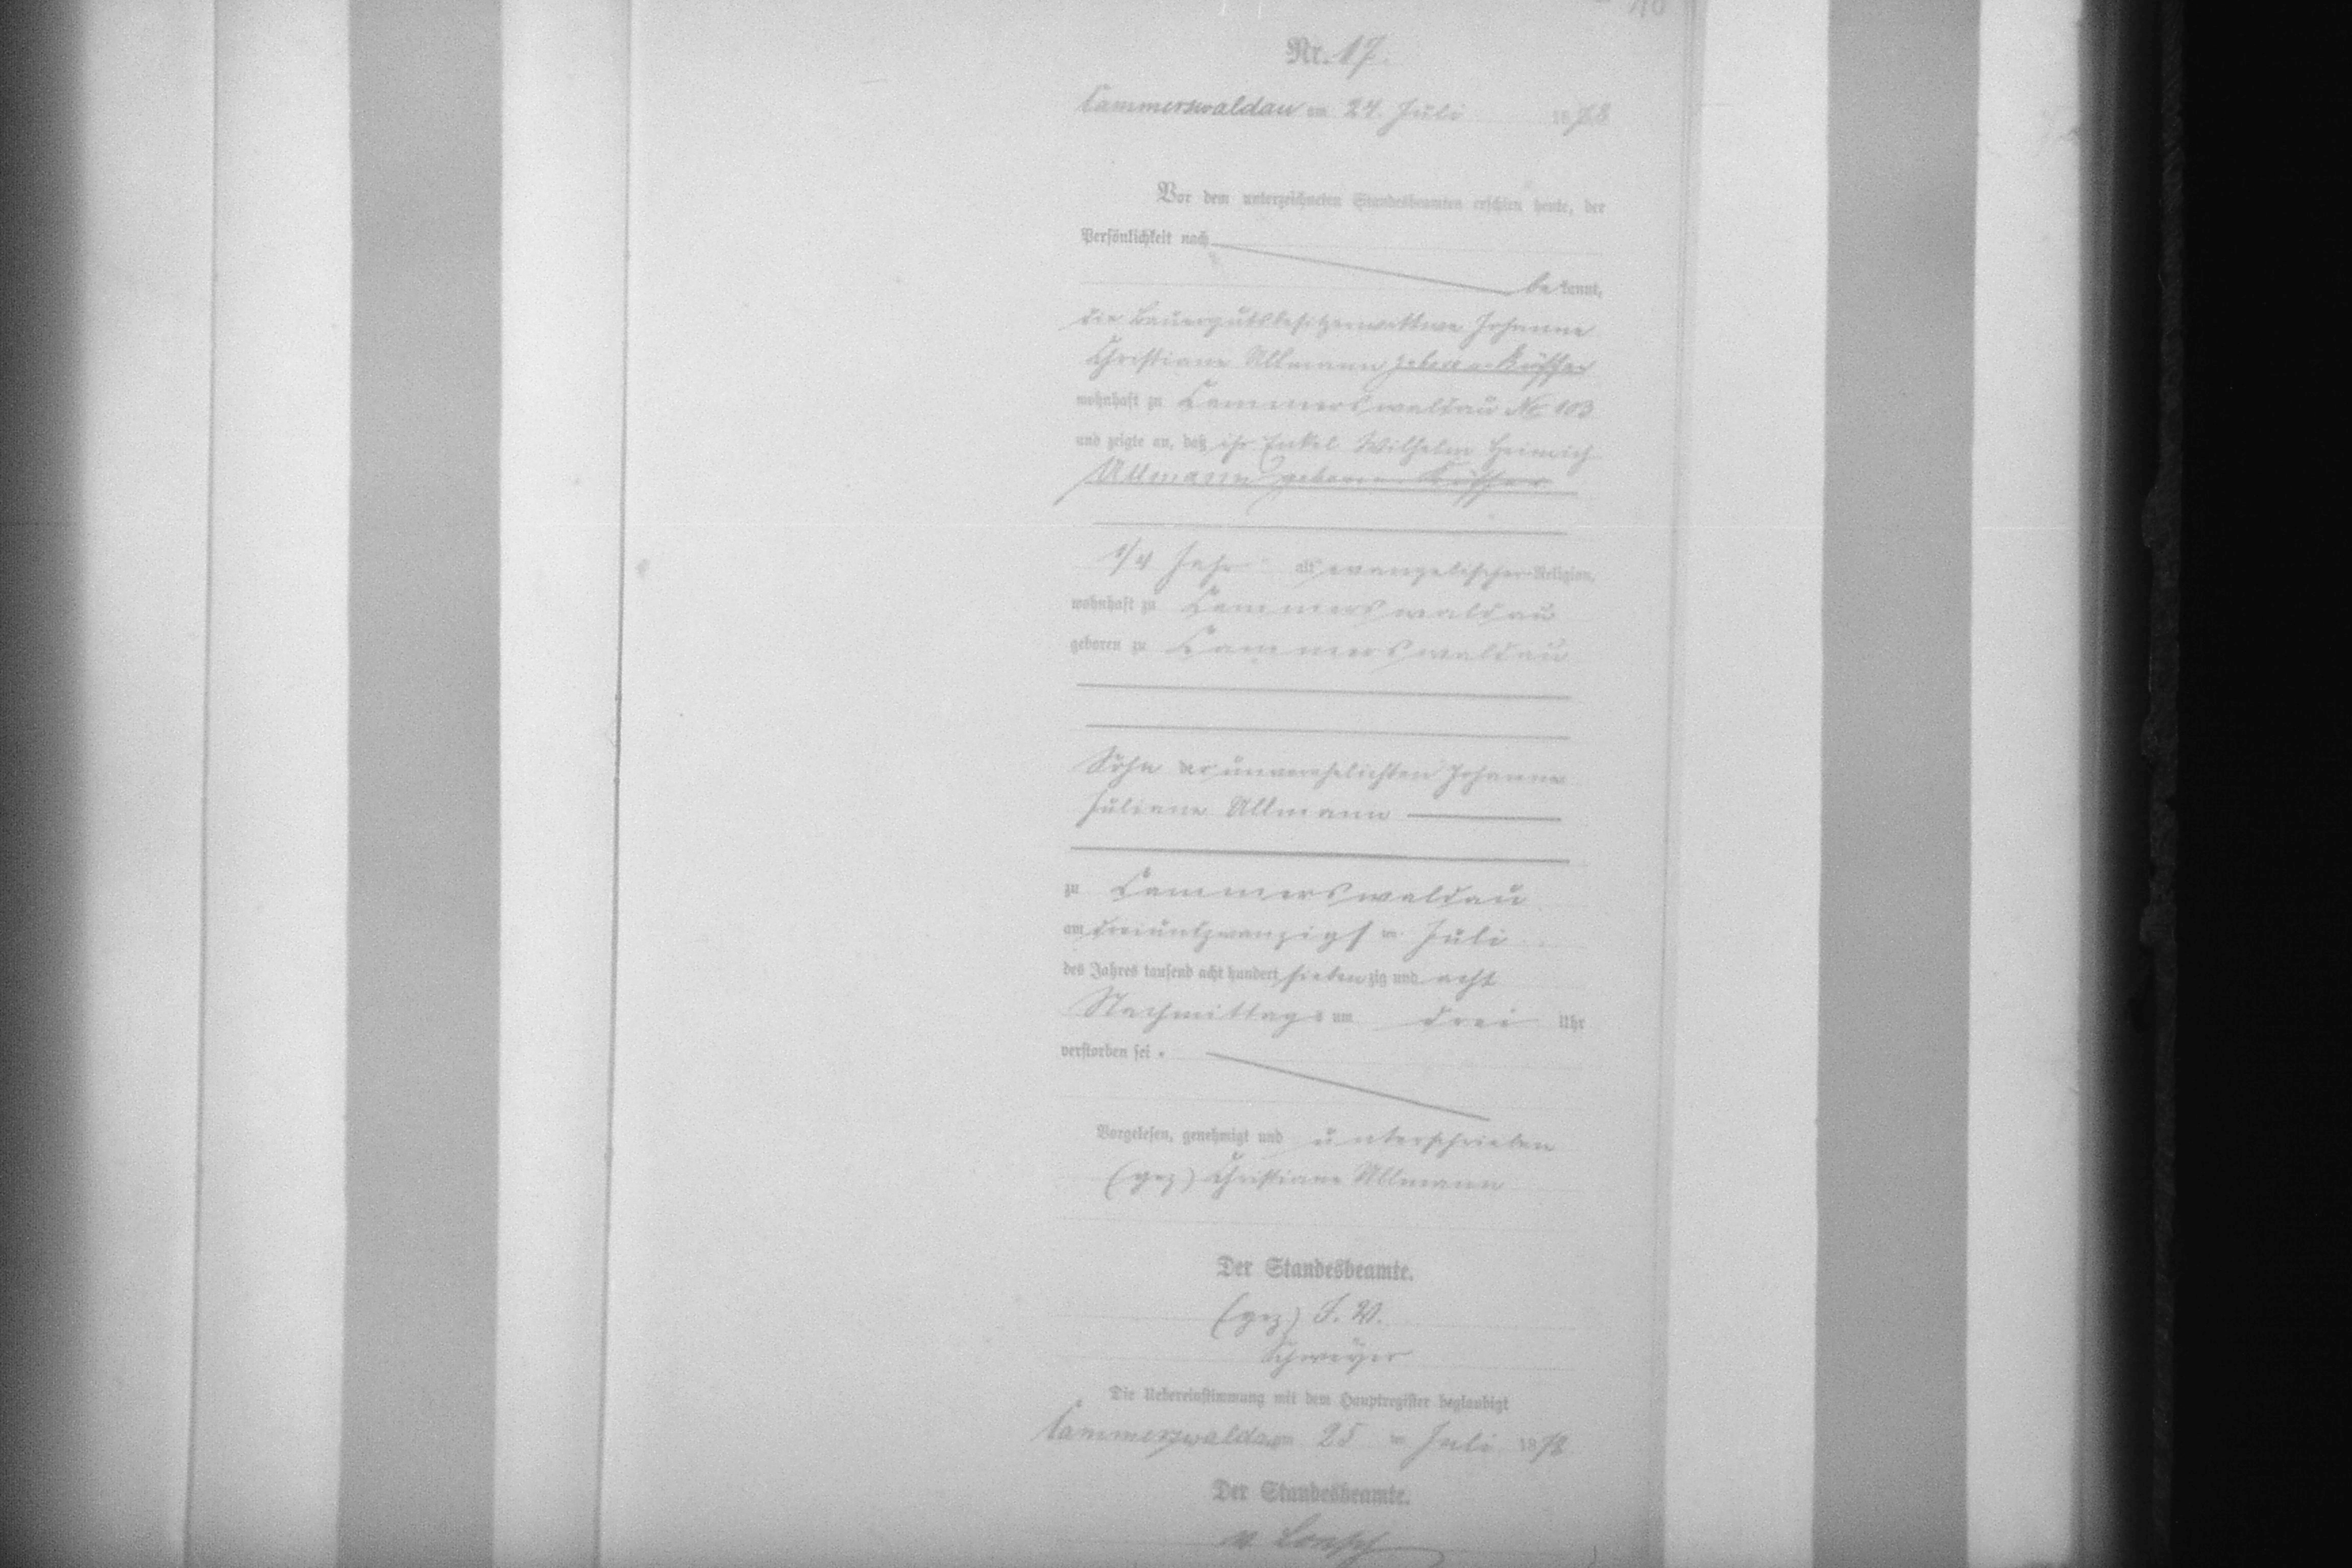 Nr. 17.
Cammerswaldau am 24. Juli 1878
Vor dem unterzeichneten Standesbeamten erschien heute, der
Persönlichkeit nach
bekannt,
die Bauergutsbesitzerwittwe Johanne
Christiane Ullmann geborene
wohnhaft zu Cammerswaldau No 103
und zeigte an, daß ihr Enkel Wilhelm Heinrich
Ullmann geborene
1/4 Jahr alt, evangelischer Religion,
wohnhaft zu Cammerswaldau
geboren zu Cammerswaldau
Sohn der unverehelichten Johanne
Juliane Ullmann
zu Cammerswaldau
am dreiundzwanzigsten Juli
des Jahres tausend acht hundert siebenzig und acht
Nachmittags um drei Uhr
verstorben sei.
Vorgelesen, genehmigt und unterschrieben
(gez) Christiane Ullmann
Der Standesbeamte.
(gez) J. V.
Die Uebereinstimmung mit dem Hauptregister beglaubigt
Cammerswaldau am 25 ten Juli 1878
Der Standesbeamte.